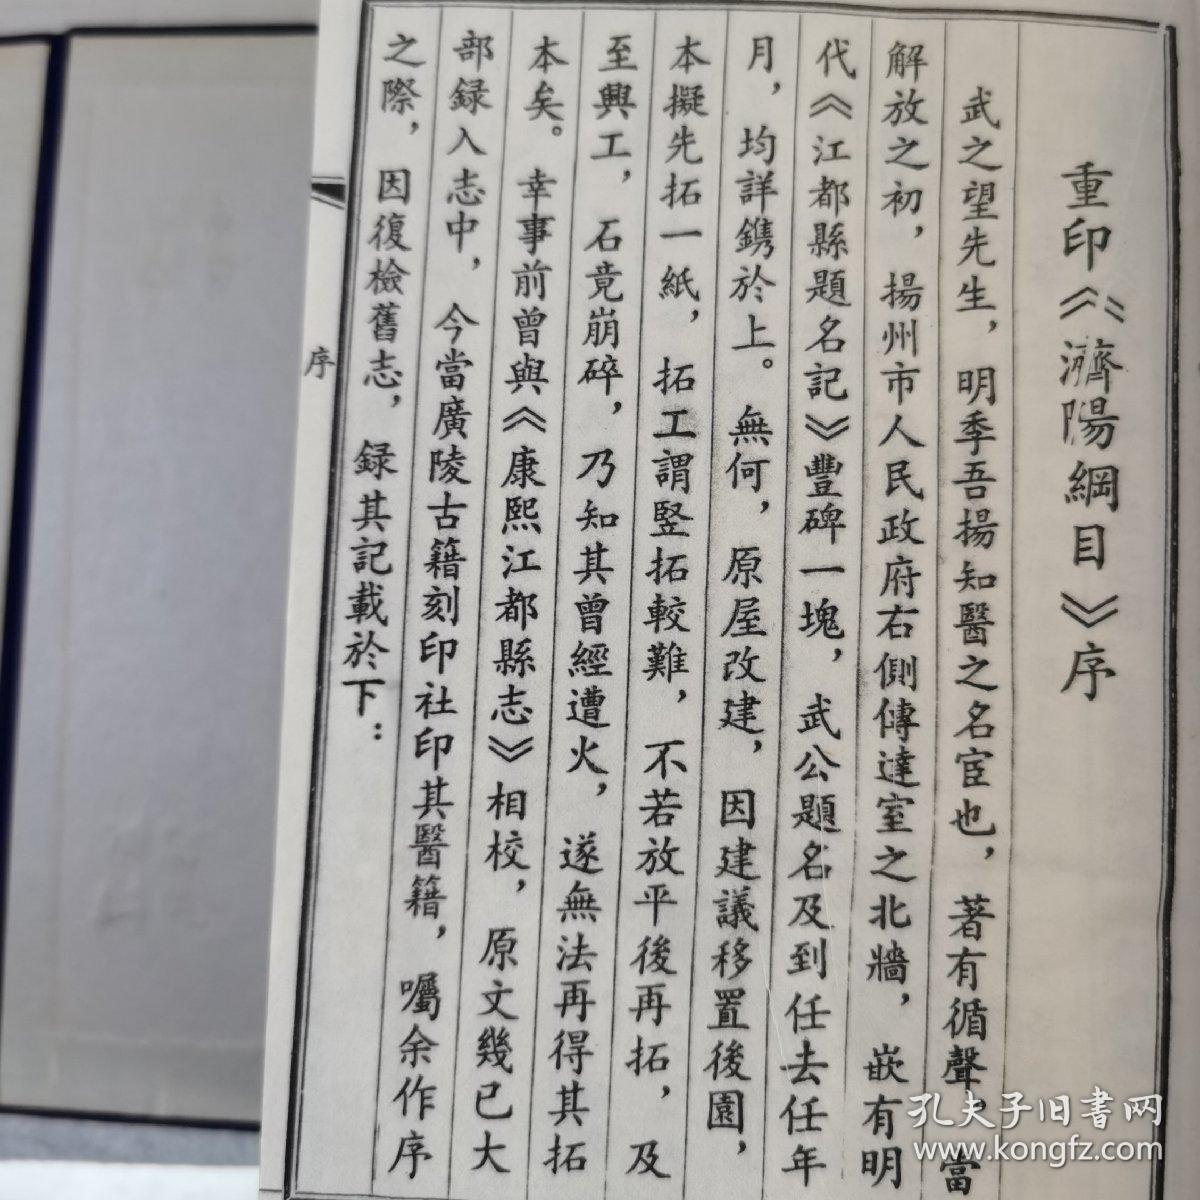 重印《濟陽綱目》序
武之望先生，明季吾揚知醫之名宦也，著有循聲，當
解放之初，揚州市人民政府右側傳達室之北牆，嵌有明
代《江都縣題名記》豐碑一塊，武公題名及到任去任年
月，均詳鐫於上。無何，原屋改建，因建議移置後園，
本擬先拓一紙，拓工謂竪拓較難，不若放平後再拓，及
至興工，石竟崩碎，乃知其曾經遭火，遂無法再得其拓
本矣。幸事前曾與《康熙江都縣志》相校，原文幾已大
部録入志中，今當廣陵古籍刻印社印其醫籍，囑余作序
之際，因復檢舊志，録其記載於下：
序
孔夫子旧书网
www.kongfz.com